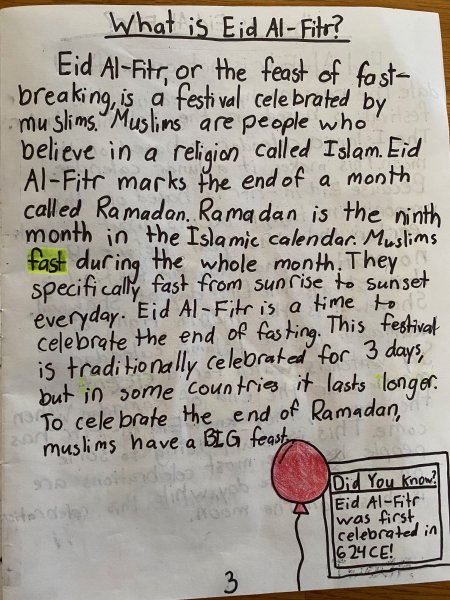 What is Eid Al-Fitr?
Eid Al-Fitr, or the feast of fast-
breaking, is a festival celebrated by
muslims. Muslims are people who
believe in a religion called Islam. Eid
Al-Fitr marks the end of a month
called Ramadan. Ramadan is the ninth
month in the Islamic calendar. Muslims
fast during the whole month. They
specifically fast from sunrise to sunset
everyday. Eid Al-Fitr is a time to
celebrate the end of fasting. This festival
is traditionally celebrated for 3 days,
but in some countries it lasts longer.
To celebrate the end of Ramadan,
muslims have a BIG feast.
Did You Know?
Eid Al-Fitr
was first
celebrated in
624 CE!
3